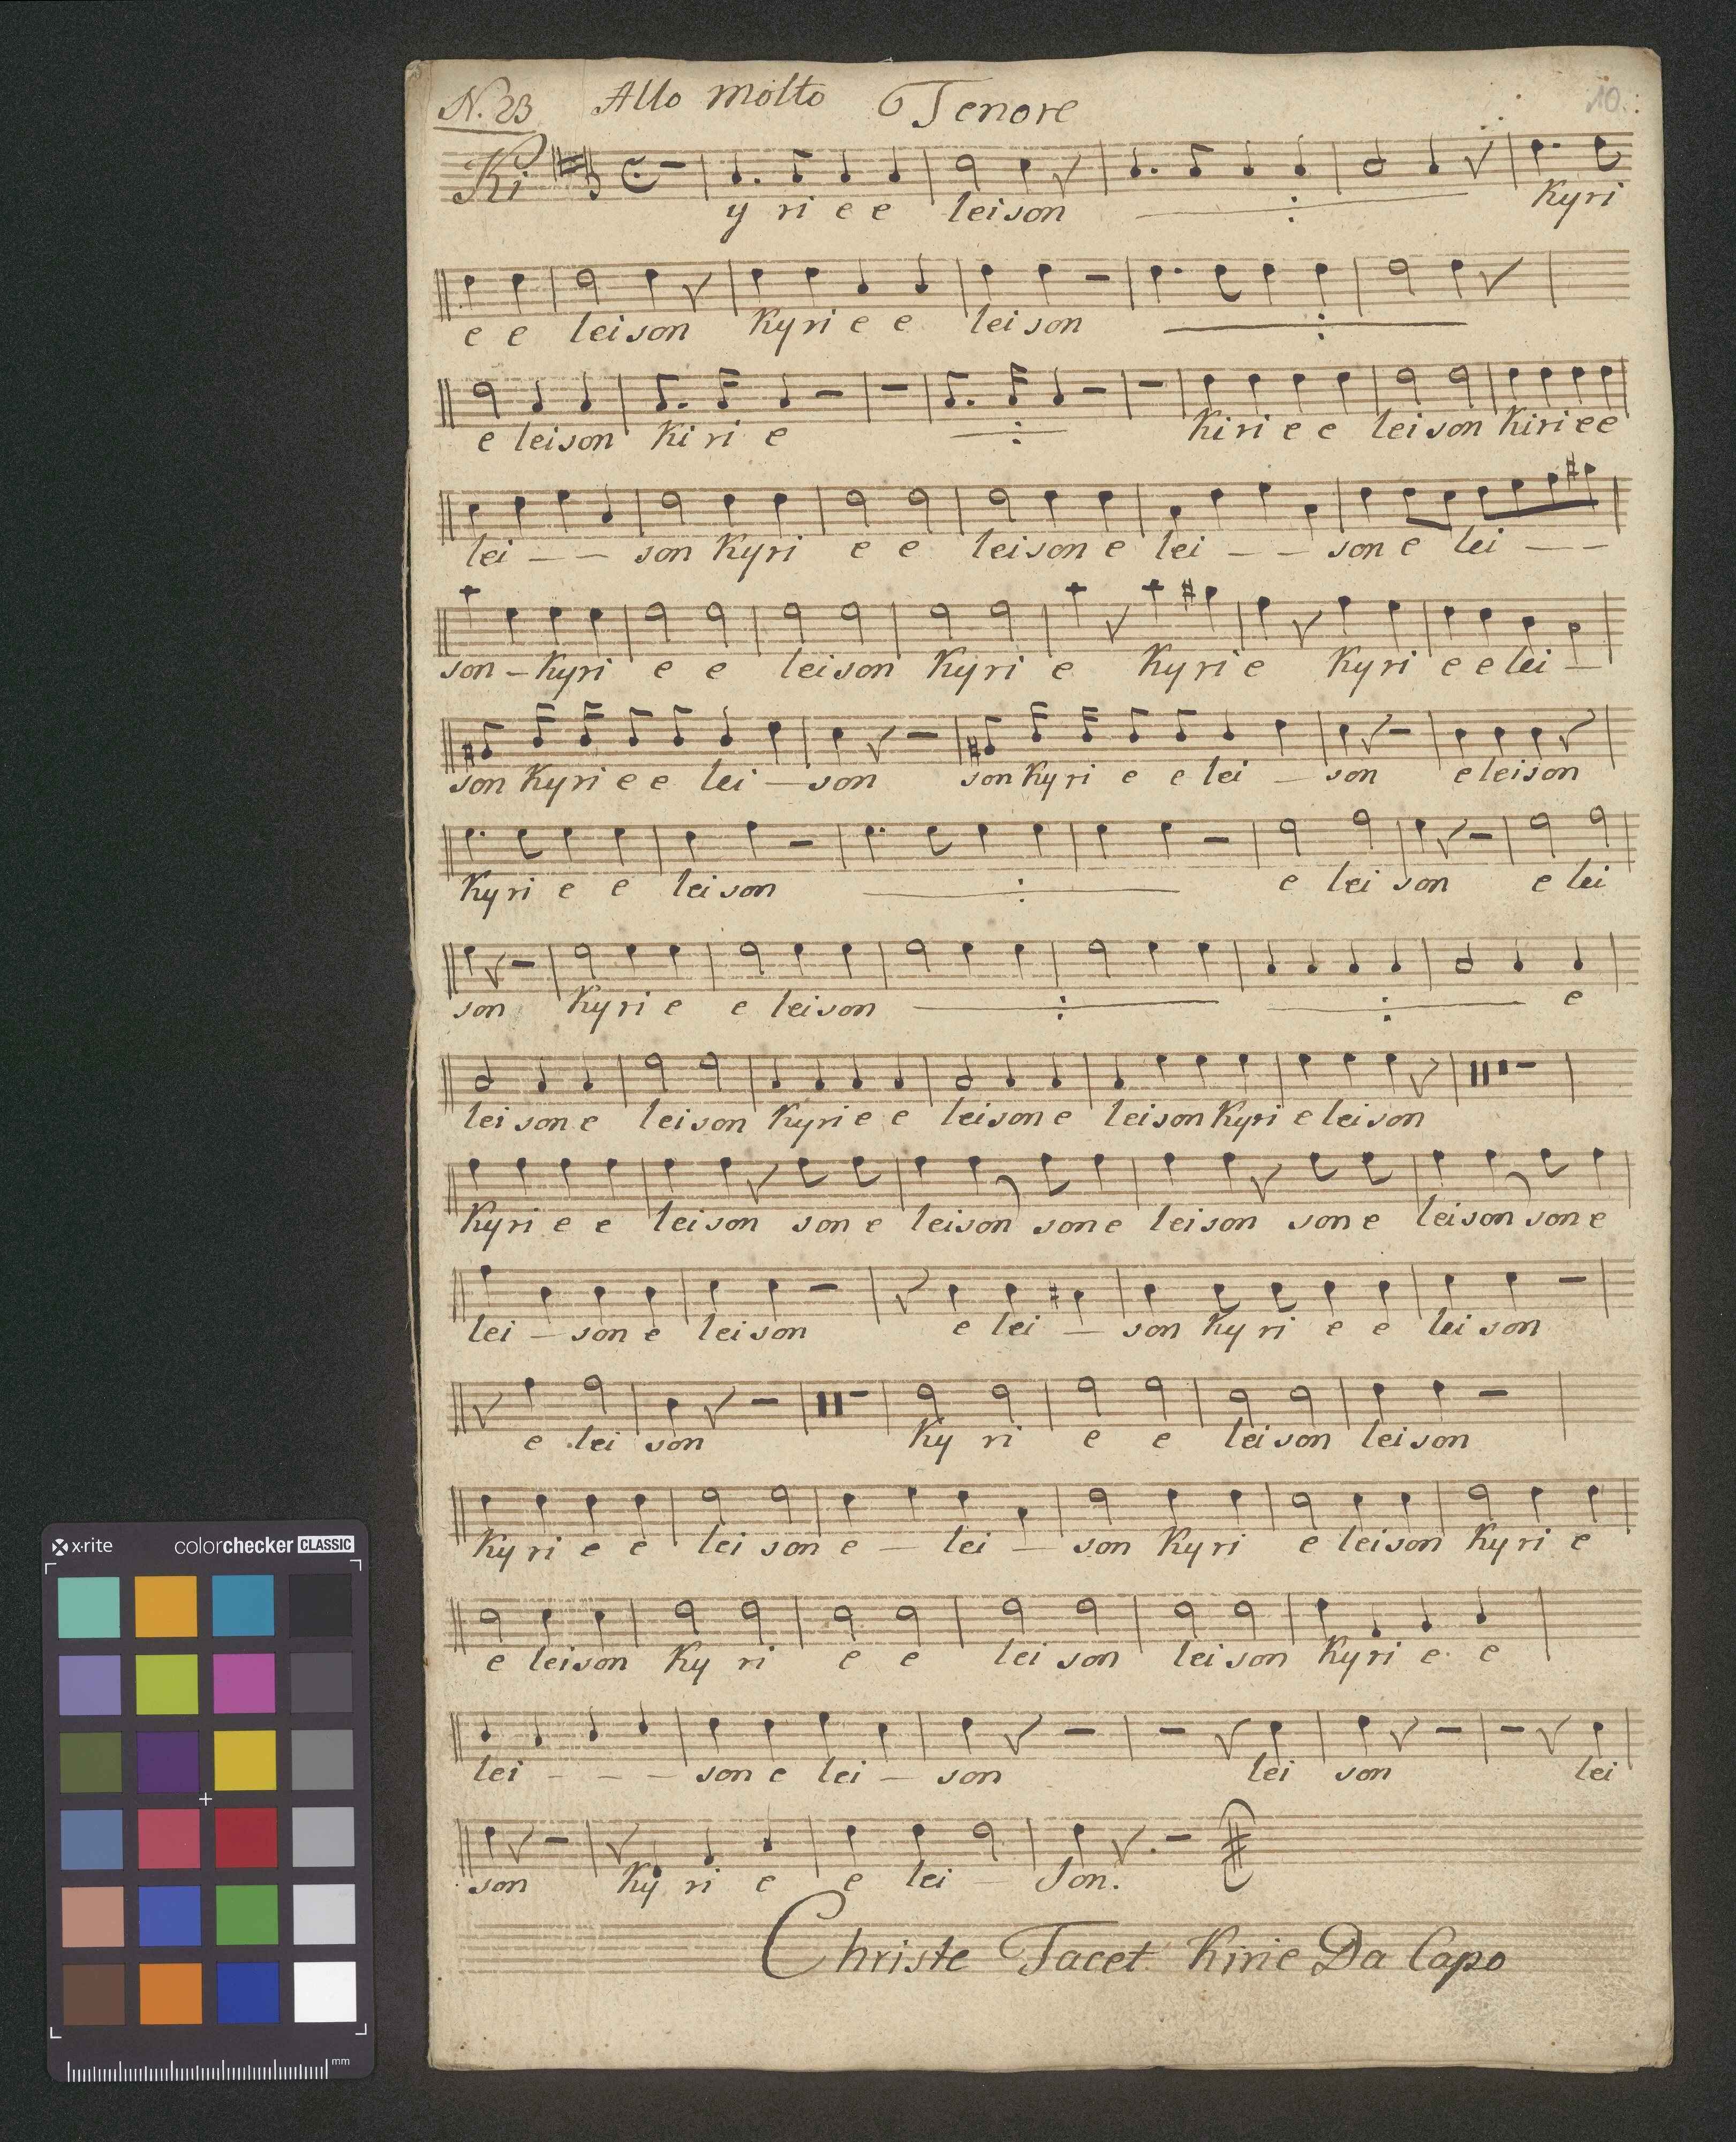 N. 23 Allo Molto Tenore 10.
Ki y ri e e leison Kyri
e e leison Kyri e e leison
e leison Ki ri e Kiri e e leison Kiri e e
lei - - son Kyri e e leison e lei - - son e lei - -
son - Kyri e e leison Kyri e Kyrie Kyri e e lei -
son Kyri e e lei - son son Kyri e e lei - son eleison
Kyri e e leison e leison e lei
son Kyri e e leison e
leison e leison Kyri e e leison e leison Kyri e leison
Kyri e e leison son e leison son e leison son e leison son e
lei - son e leison e lei - son Kyri e e leison
e lei son Ky ri e e leison leison
Kyri e e leison e - lei - son Kyri e leison Kyri e
e leison Ky ri e e leison leison Kyri e e
lei - - - son e lei - son lei son lei
son Ky ri e e lei - Son.
Christe Tacet Kirie Da Capo
x·rite colorchecker CLASSIC
mm